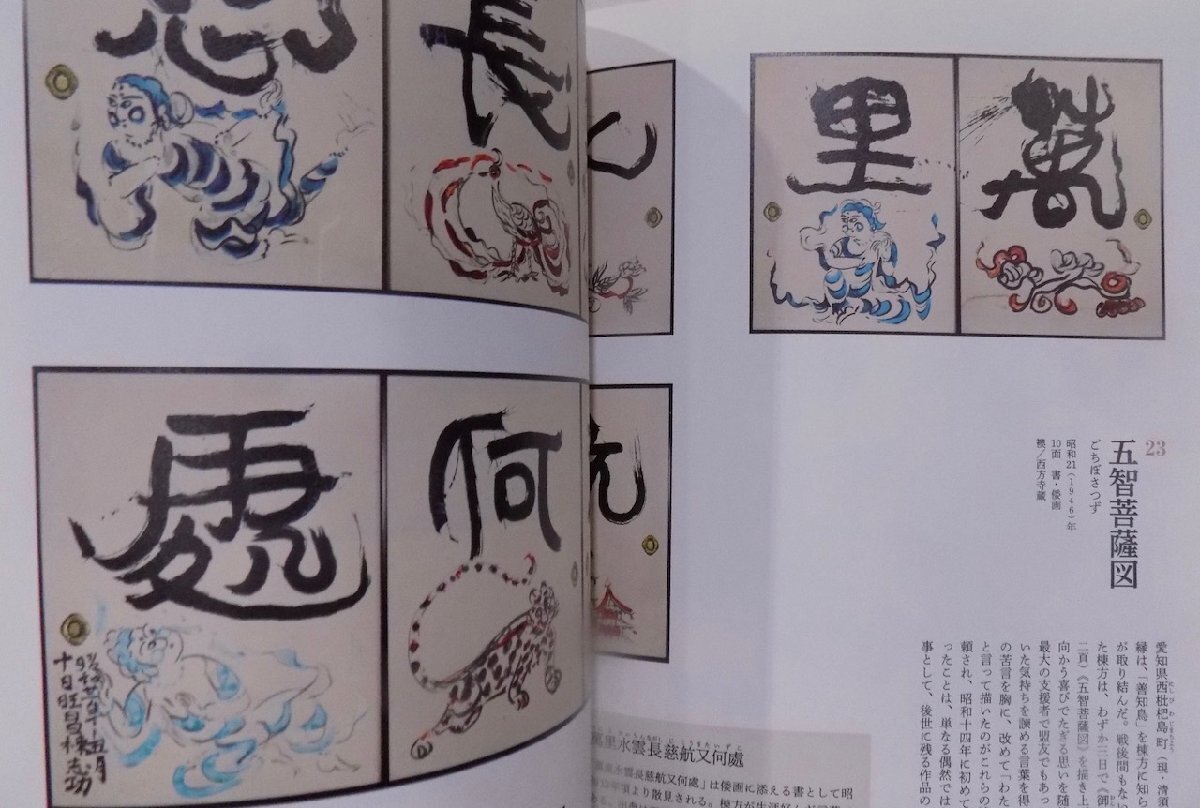 萬
里
長
何
處
23
五智菩薩図
ごちぼさつず
昭和21(1946)年
10面 書・倭画
襖/西方寺蔵
愛知県西枇杷島町(現・清須
縁は、「善知鳥」を棟方に知ら
が取り結んだ。戦後間もな
た棟方は、わずか三日で《御
二頁)《五智菩薩図》を描き上
向かう喜びでたぎる思いを随
最大の支援者で盟友でもあ
いた気持ちを諫める言葉を得
の苦言を胸に、改めて「わた
と言って描いたのがこれらの
頼され、昭和十四年に初めて
ったことは、単なる偶然では
事として、後世に残る作品の
萬里水雲長慈航又何處
水雲長慈航又何處」は倭画に添える書として昭
年頃より散見される。棟方が生涯好んだ